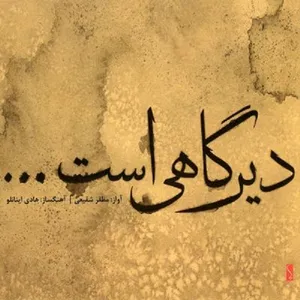 دیرگاهی است...
آواز: مظفر شفیعی | آهنگساز: هادی اینانلو